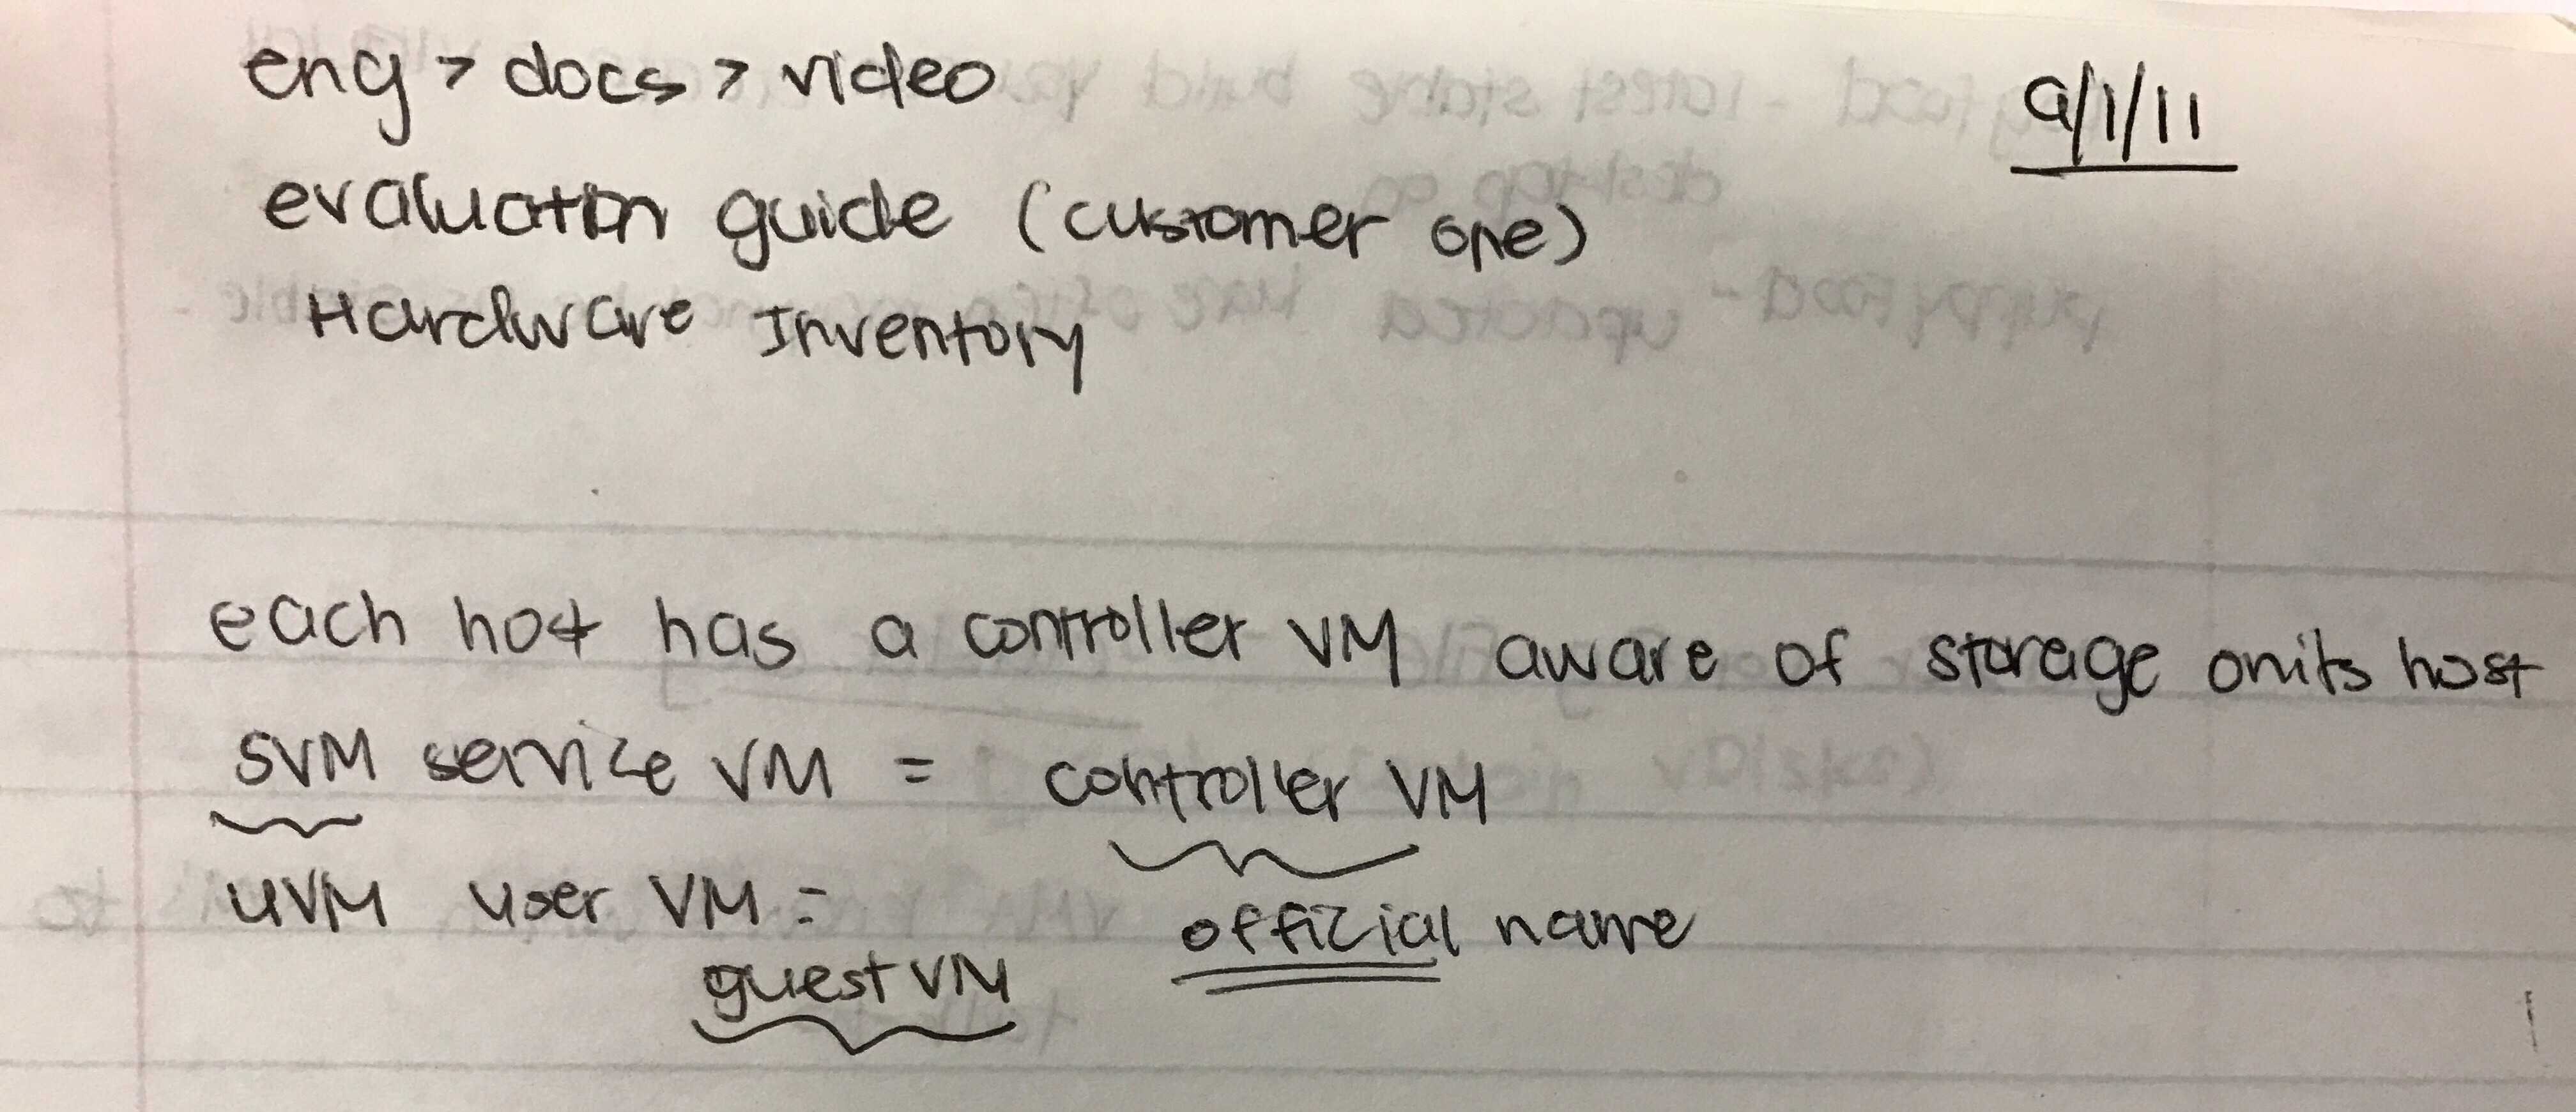 eng > docs > video
9/1/11
evaluation guide (customer one)
Hardware Inventory
each host has a controller VM aware of storage on its host
SVM service VM = controller VM
UVM user VM =
official name
guest VM